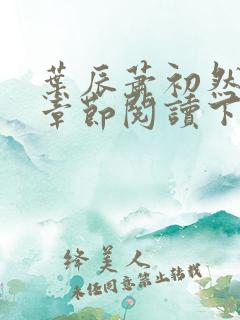 葉辰蕭初然
章節閱讀下
絳美人
未经同意禁止转载